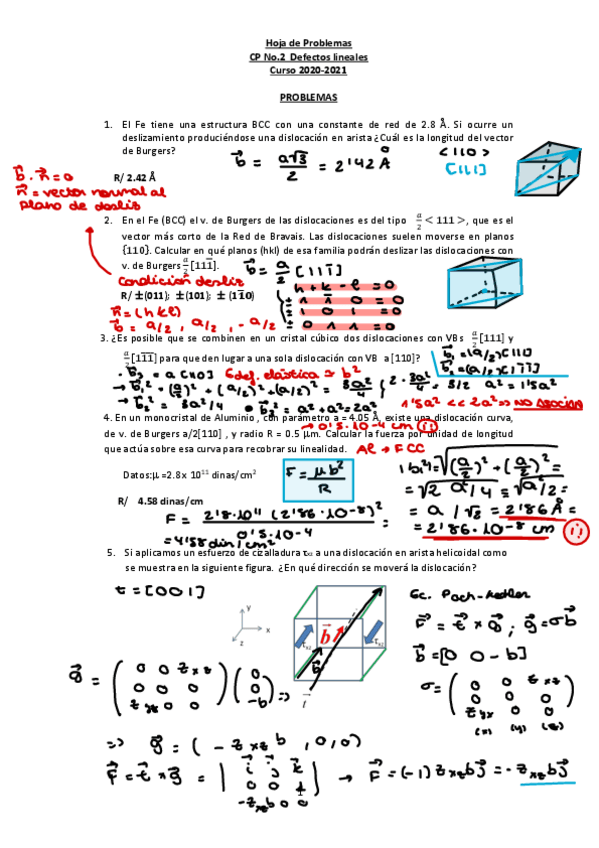 Hoja de Problemas
CP No.2 Defectos lineales
Curso 2020-2021
PROBLEMAS
1. El Fe tiene una estructura BCC con una constante de red de 2.8 Å. Si ocurre un
deslizamiento produciéndose una dislocación en arista ¿Cuál es la longitud del vector
de Burgers?
b⃗ = a√3/2 = 2'42 Å
<110>
[111]
b⃗ · n⃗ = 0
R/ 2.42 Å
n⃗ = vector normal al
plano de desliz
2. En el Fe (BCC) el v. de Burgers de las dislocaciones es del tipo a/2 < 111 >, que es el
vector más corto de la Red de Bravais. Las dislocaciones suelen moverse en planos
{110}. Calcular en qué planos (hkl) de esa familia podrán deslizar las dislocaciones con
v. de Burgers a/2[111̅].
b⃗ = a/2 [111̅]
condición desliz
h + k - l = 0
R/ ±(011); ±(101); ± (11̅0)
± 1 1̅ 0 = 0
± 1 0 1 = 0
± 0 1 1 = 0
n⃗ = (hkl)
b⃗ = a/2, a/2, -a/2
3. ¿Es posible que se combinen en un cristal cúbico dos dislocaciones con VBs a/2[111] y
a/2[111̅] para que den lugar a una sola dislocación con VB a [110]?
b⃗₁ = (a/2)[111]
b⃗₂ = (a/2)[111̅]
b⃗₃ = a[110]
Edef. elástica ≃ b²
→ b₁² = (a/2)² + (a/2)² + (a/2)² = 3a²/4
→ b₂² = 3a²/4
2·3a²/4 = 3/2 a² = 1'5a²
b₃² = a² + a² = 2a²
1'5a² << 2a² ⇒ NO
4. En un monocristal de Aluminio , con parámetro a = 4.05 Å, existe una dislocación curva,
→ 0'5·10-4 cm (i)
de v. de Burgers a/2[110] , y radio R = 0.5 μm. Calcular la fuerza por unidad de longitud
que actúa sobre esa curva para recobrar su linealidad.
Al → FCC
Datos:μ =2.8x 10¹¹ dinas/cm²
F = μb²/R
|b⃗| = √((a/2)² + (a/2)²) =
= √(2 a²/4) = √(a²/2) =
= a/√2 = 2'86 Å =
= 2'86·10-8 cm
(i)
R/ 4.58 dinas/cm
F = 2'8·10¹¹ (2'86·10-8)² / 0'5·10-4 =
= 4'58 din/cm²
5. Si aplicamos un esfuerzo de cizalladura τxz a una dislocación en arista helicoidal como
se muestra en la siguiente figura. ¿En qué dirección se moverá la dislocación?
t = [001]
y
x
z
τxz
b⃗
b⃗
τxz
t⃗
Ec. Pach-
F⃗ = t⃗ × g⃗ ; g⃗ = σb⃗
b⃗ = [0 0 -b]
g⃗ = (0 0 τxz
0 0 0
τzx 0 0) (0
0
-b) =>
σ = (0 0 τxz
0 0 0
τzx 0 0)
(x) (y) (z)
=> g⃗ = (-τxz b, 0, 0)
F⃗ = t⃗ × g⃗ = |i⃗ j⃗ k⃗
0 0 1
-τxzb 0 0| → F⃗ = (-1) τxz b j⃗ = -τxz b j⃗